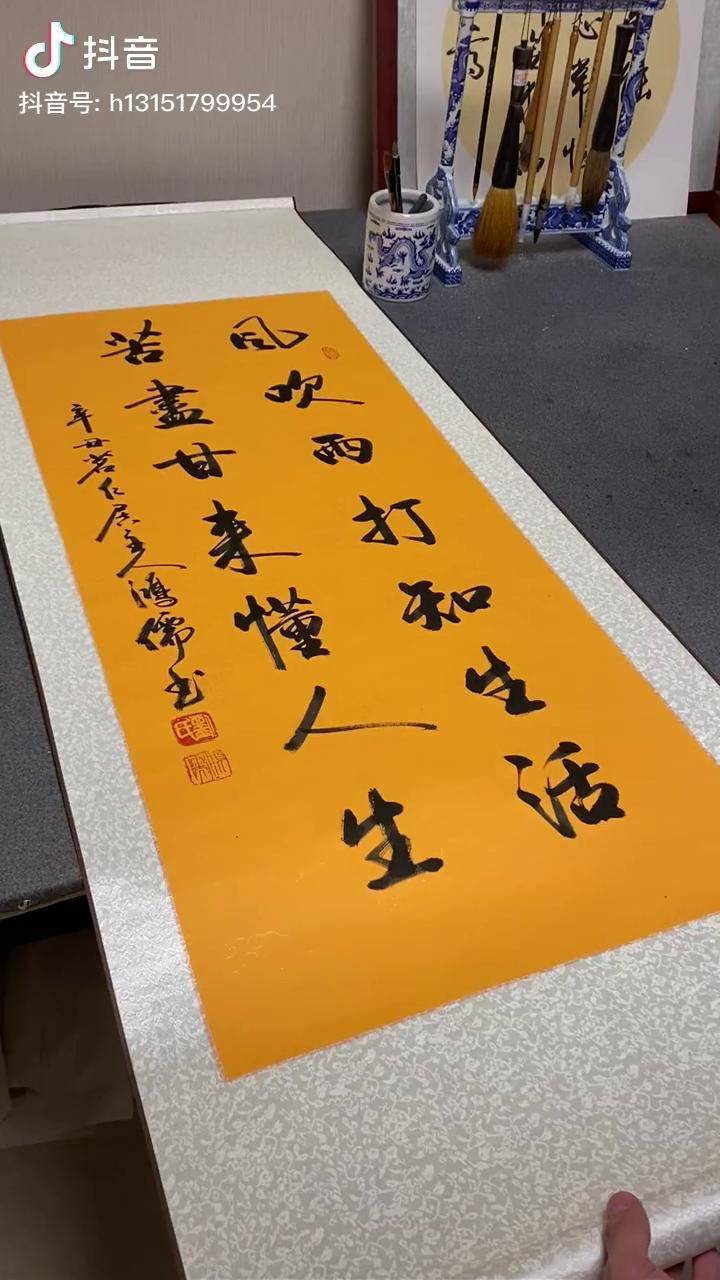 抖音
抖音号: h13151799954
风吹雨打知生活
苦盡甘来懂人生
辛丑茗仁居主人鴻儒书